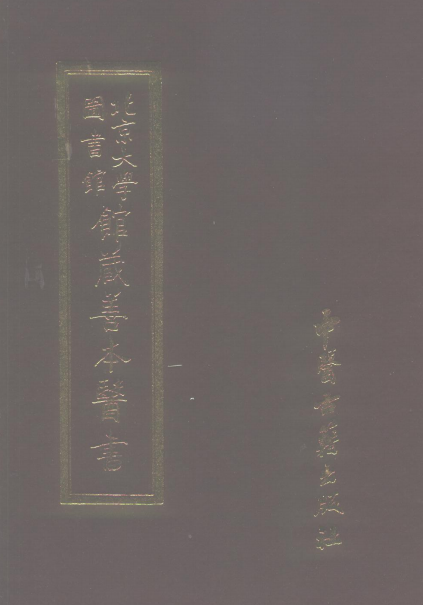 北京大學
圖書館
館藏善本醫書
中醫古籍出版社